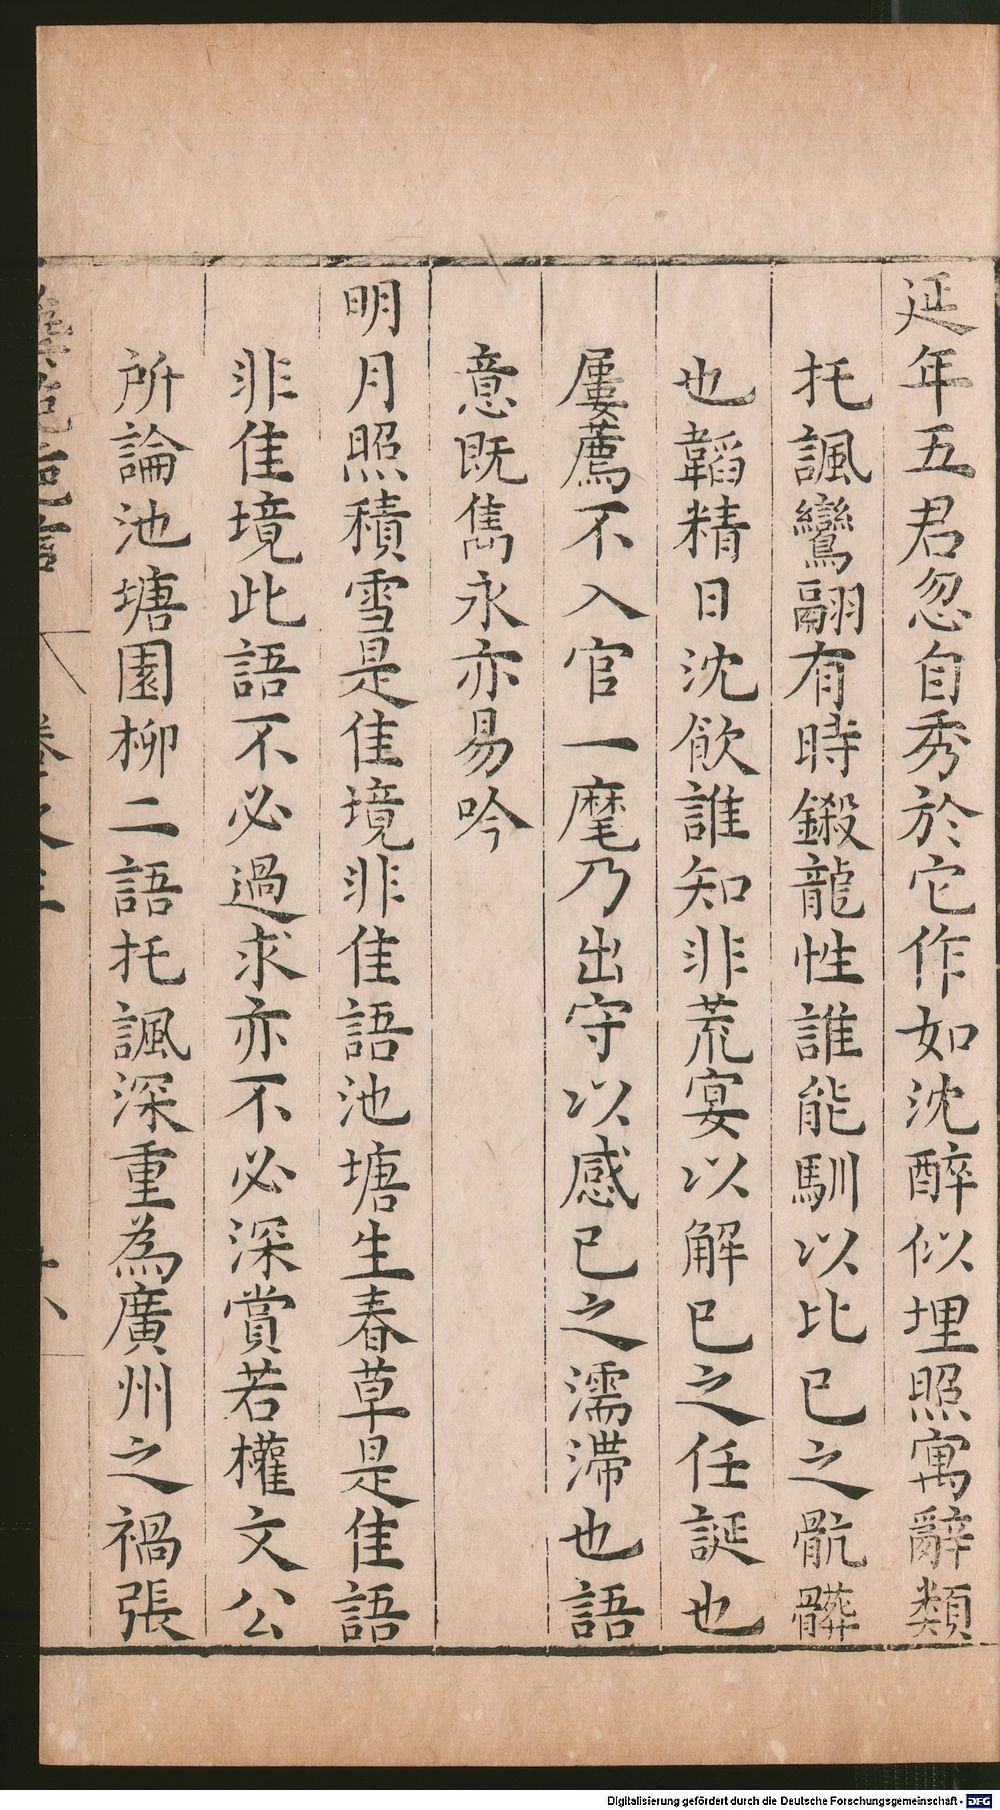 延年五君忽自秀於它作如沈醉似埋照寓辭類
托諷鸞翮有時鎩龍性誰能馴以比已之骯髒
也韜精日沈飲誰知非荒宴以解已之任誕也
屢薦不入官一麾乃出守以感已之濡滯也語
意既雋永亦易吟
明月照積雪是佳境非佳語池塘生春草是佳語
非佳境此語不必過求亦不必深賞若權文公
所論池塘園柳二語托諷深重為廣州之禍張
Digitalisierung gefördert durch die Deutsche Forschungsgemeinschaft - DFG